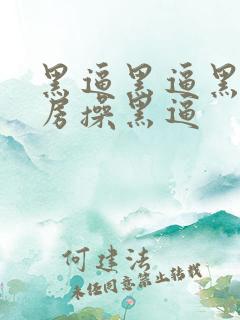 黑逼黑逼黑
房操黑逼
何建法
未经同意禁止转载